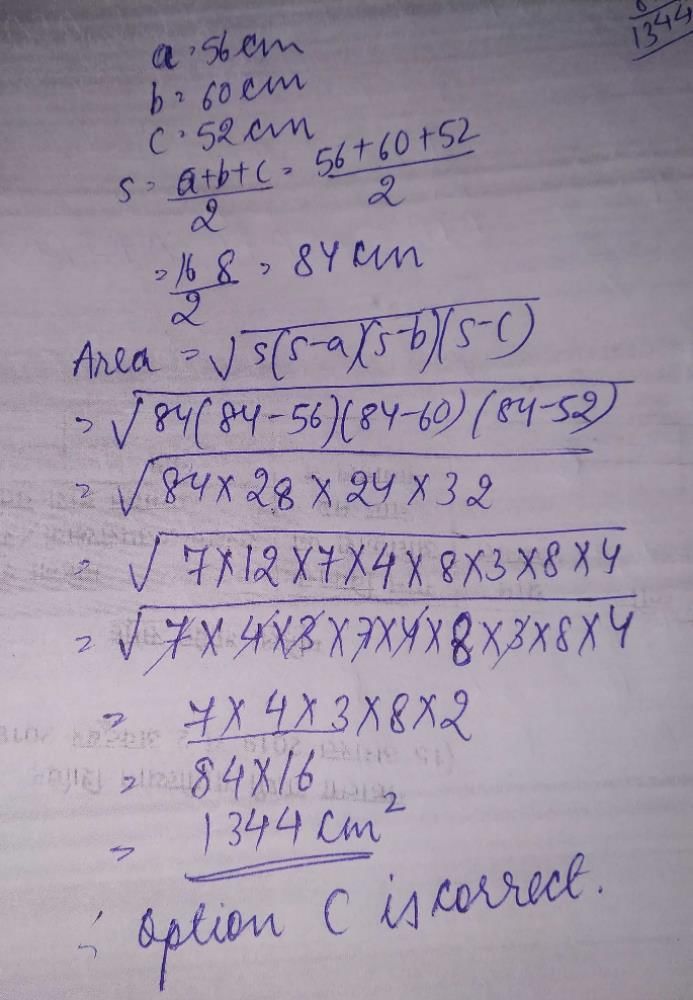 1344
a = 56 cm
b = 60 cm
c = 52 cm
s = a+b+c/2 = 56+60+52/2
= 168/2 = 84 cm
Area = √s(s-a)(s-b)(s-c)
= √84(84-56)(84-60)(84-52)
= √84×28×24×32
= √7×12×7×4×8×3×8×4
= √7×4×3×7×4×8×3×8×4
= 7×4×3×8×2
= 84×16
= 1344 cm²
∴ option C is correct.